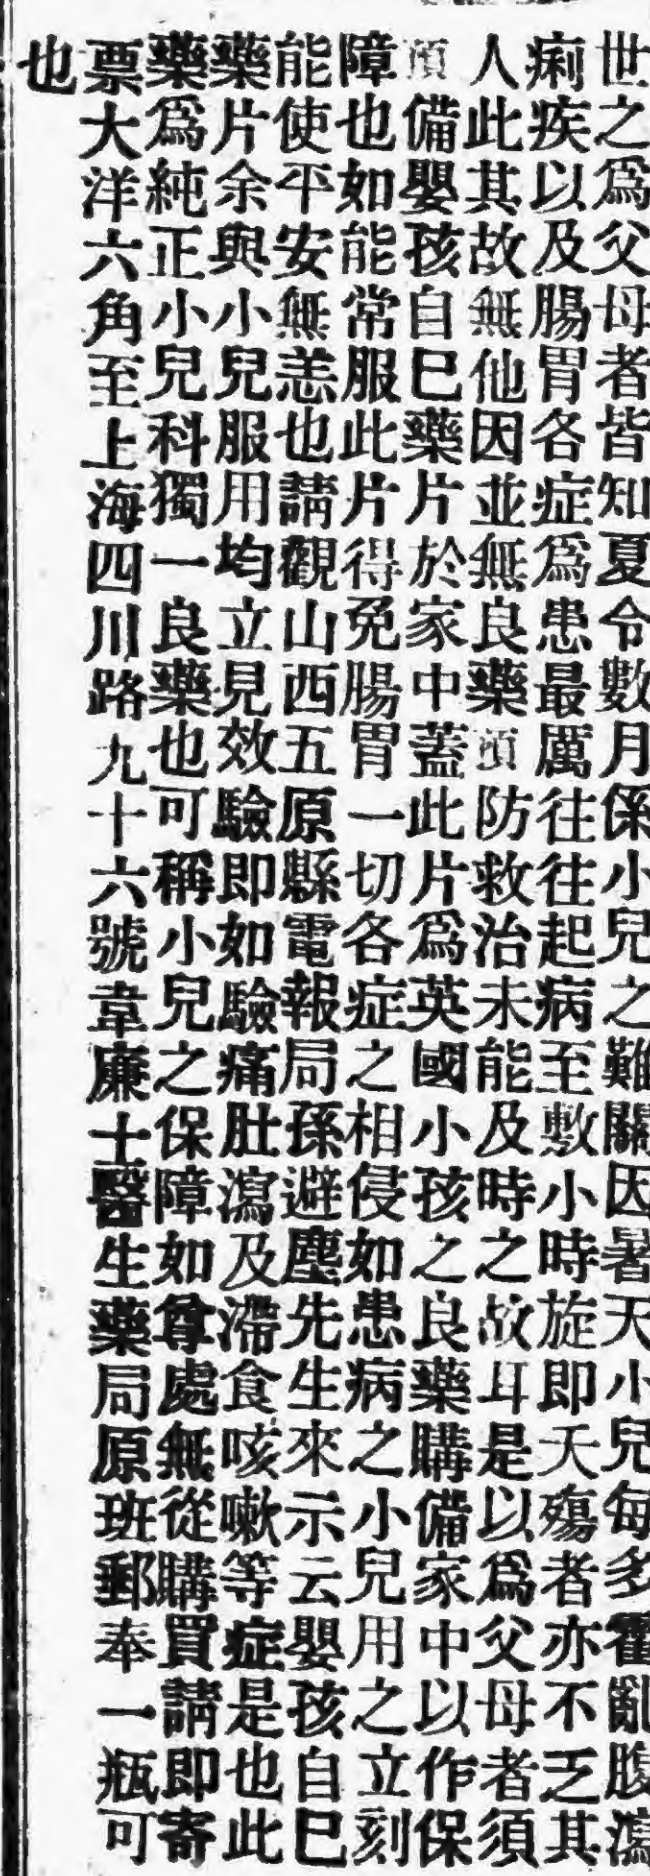 世之爲父母者皆知夏令數月係小兒之難關因暑天小兒每多霍亂腹瀉
痢疾以及腸胃各症爲患最厲往往起病至敷小時旋即夭殤者亦不乏其
人此其故無他因並無良藥預防救治未能及時之故耳是以爲父母者須
預備嬰孩自巳藥片於家中蓋此片爲英國小孩之良藥購備家中以作保
障也如能常服此片得免腸胃一切各症之相侵如患病之小兒用之立刻
能使平安無恙也請觀山西五原縣電報局孫避塵先生來示云嬰孩自巳
藥片余與小兒服用均立見效驗即如驗痛肚瀉及滯食咳嗽等症是也此
藥爲純正小兒科獨一良藥也可稱小兒之保障如尊處無從購買請即寄
票大洋六角至上海四川路九十六號韋廉士醫生藥局原班郵奉一瓶可
也